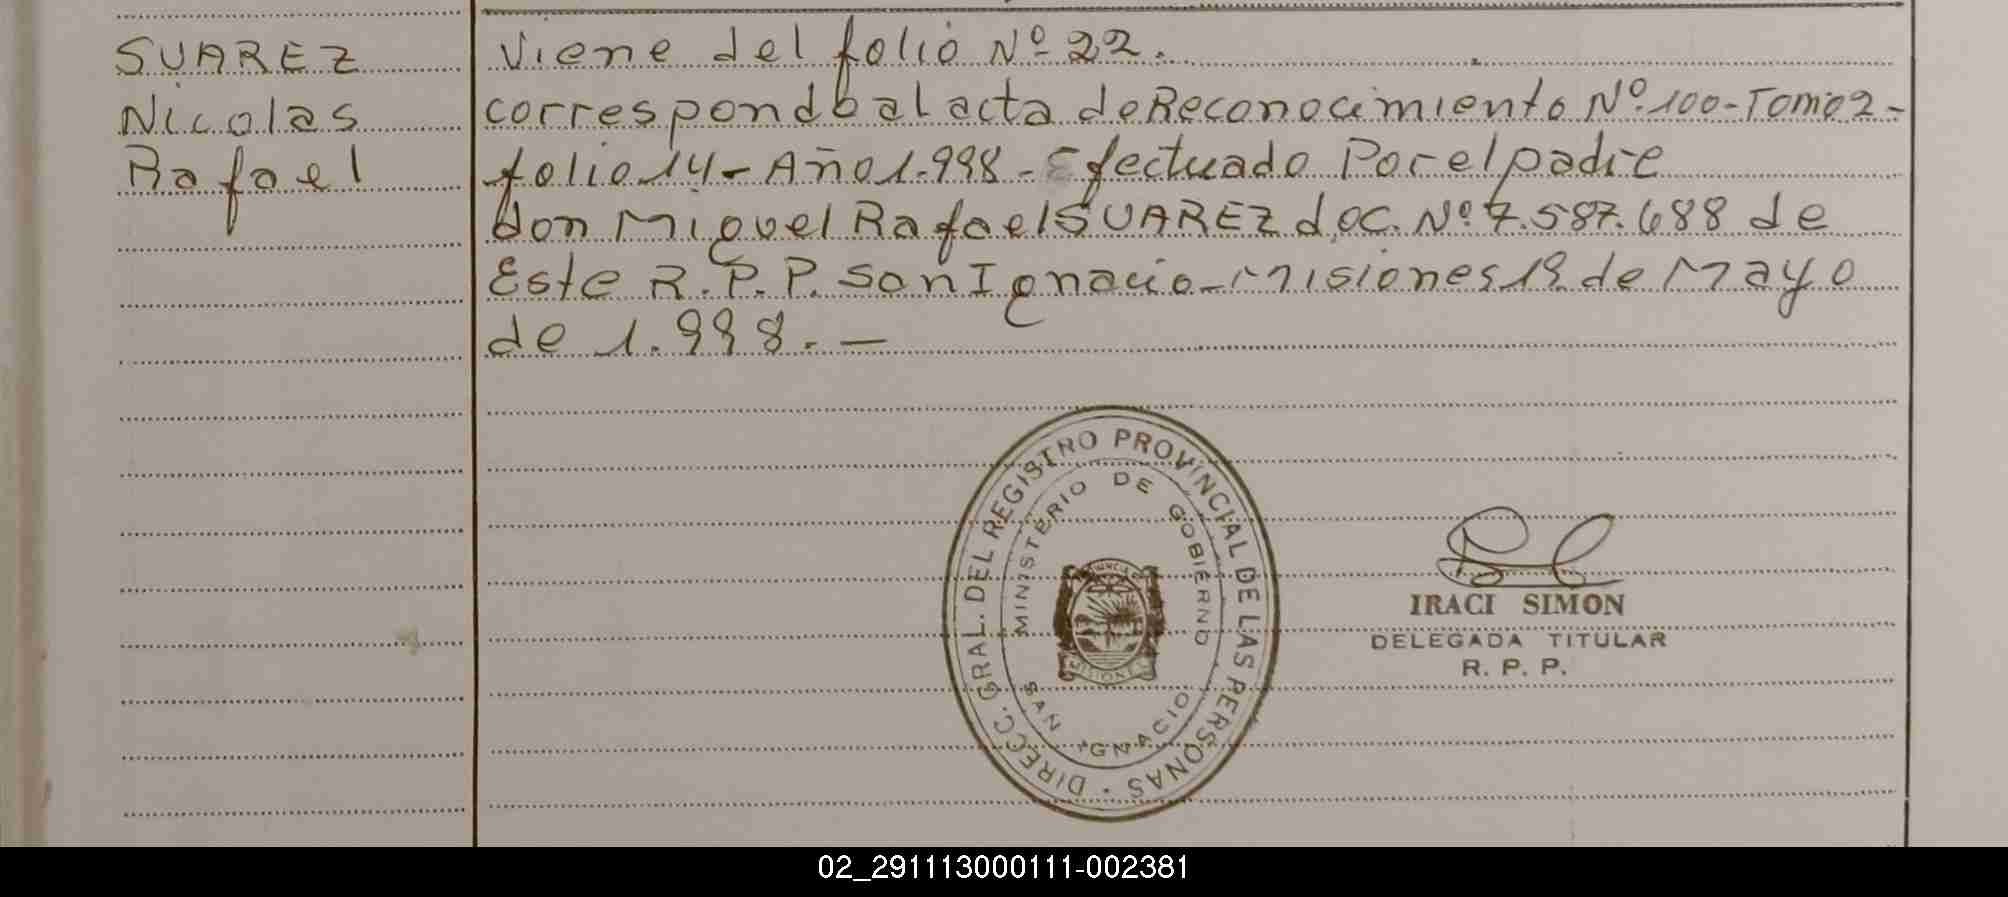 SUAREZ
Nicolas
Rafael
Viene del folio Nº 22.
correspondo al acta de Reconocimiento Nº 100-Tomo 2-
folio 14- Año 1.998- Efectuado Por el padre
don Miguel Rafael SUAREZ doc. Nº 7.587.688 de
Este R.P.P. San Ignacio-Misiones 19 de Mayo
de 1.998.-
DIRECC. GRAL. DEL REGISTRO PROVINCIAL DE LAS PERSONAS
MINISTERIO DE GOBIERNO
SAN IGNACIO
MISIONES
IRACI SIMON
DELEGADA TITULAR
R. P. P.
02_291113000111-002381